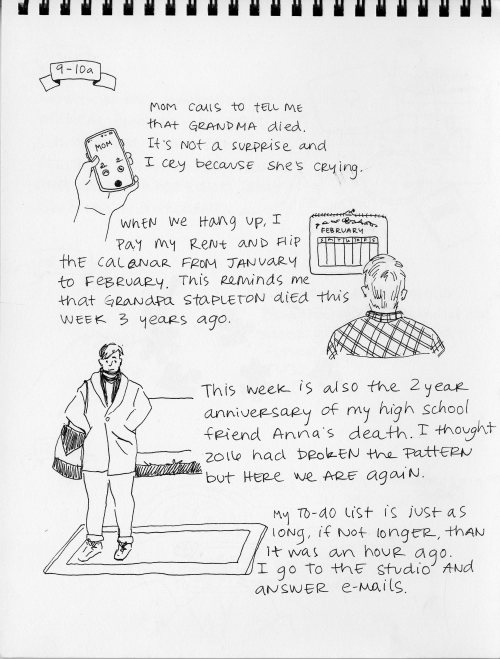 9-10a
MOM CALLS TO TELL ME
THAT GRANDMA DIED.
IT'S NOT A SURPRISE AND
I CRY BECAUSE SHE'S CRYING.
MOM
WHEN WE HANG UP, I
PAY MY RENT AND FLIP
THE CALENAR FROM JANUARY
TO FEBRUARY. THIS REMINDS ME
THAT GRANDPA STAPLETON DIED THIS
WEEK 3 YEARS AGO.
FEBRUARY
THIS WEEK IS ALSO THE 2 YEAR
ANNIVERSARY OF MY HIGH SCHOOL
FRIEND ANNA'S DEATH. I THOUGHT
2016 HAD BROKEN THE PATTERN
BUT HERE WE ARE AGAIN.
MY TO-DO LIST IS JUST AS
LONG, IF NOT LONGER, THAN
IT WAS AN HOUR AGO.
I GO TO THE STUDIO AND
ANSWER E-MAILS.